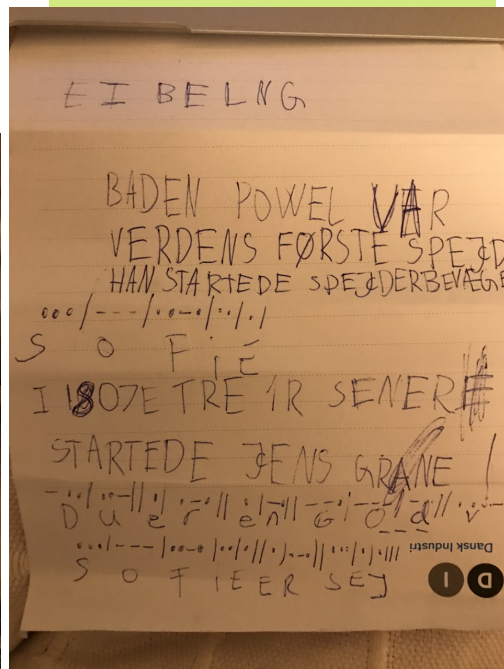 EI BELNG
BADEN POWEL VAR
VERDENS FØRSTE SPEJD
HAN STARTEDE SPEJDERBEVÆGE
•••/---/••-•/••/•/
S O F i E
I 1807E TRE 1R SENERE
STARTEDE JENS GRANE
D u e r e n G O d v
•••/---/••-•/••/•//
S O F I E E R S E J
Dansk Industri
DI